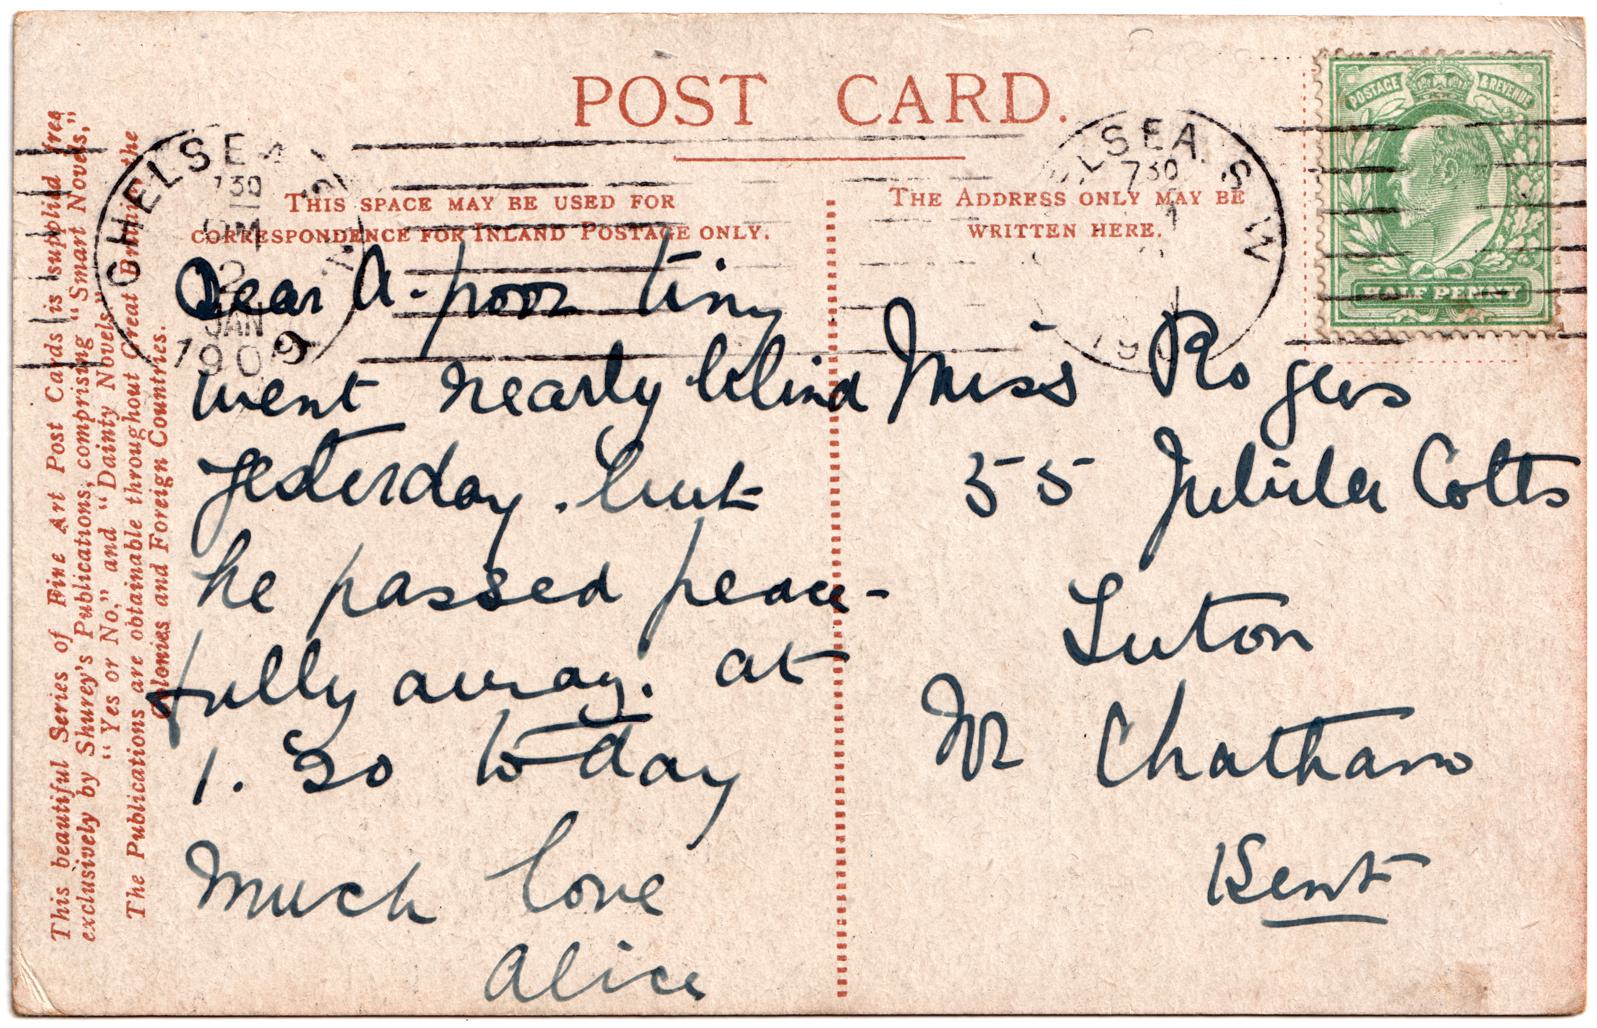 POST CARD.
THIS SPACE MAY BE USED FOR
CORRESPONDENCE FOR INLAND POSTAGE ONLY.
THE ADDRESS ONLY MAY BE
WRITTEN HERE.
POSTAGE & REVENUE
HALF PENNY
CHELSEA S.W.
7 30 PM
2
JAN
1909
CHELSEA. S W
7 30
This beautiful Series of Fine Art Post Cards is supplied free
exclusively by Shurey's Publications, comprising "Smart Novels,"
"Yes or No," and "Dainty Novels."
The Publications are obtainable throughout Great Britain, the
Colonies and Foreign Countries.
Dear A - poor tiny
went nearly blind
yesterday. but
he passed peace-
fully away. at
1. 30 to-day
Much love
Alice
Miss Rogers
55 Jubilee Cotts
Luton
Nr Chatham
Kent